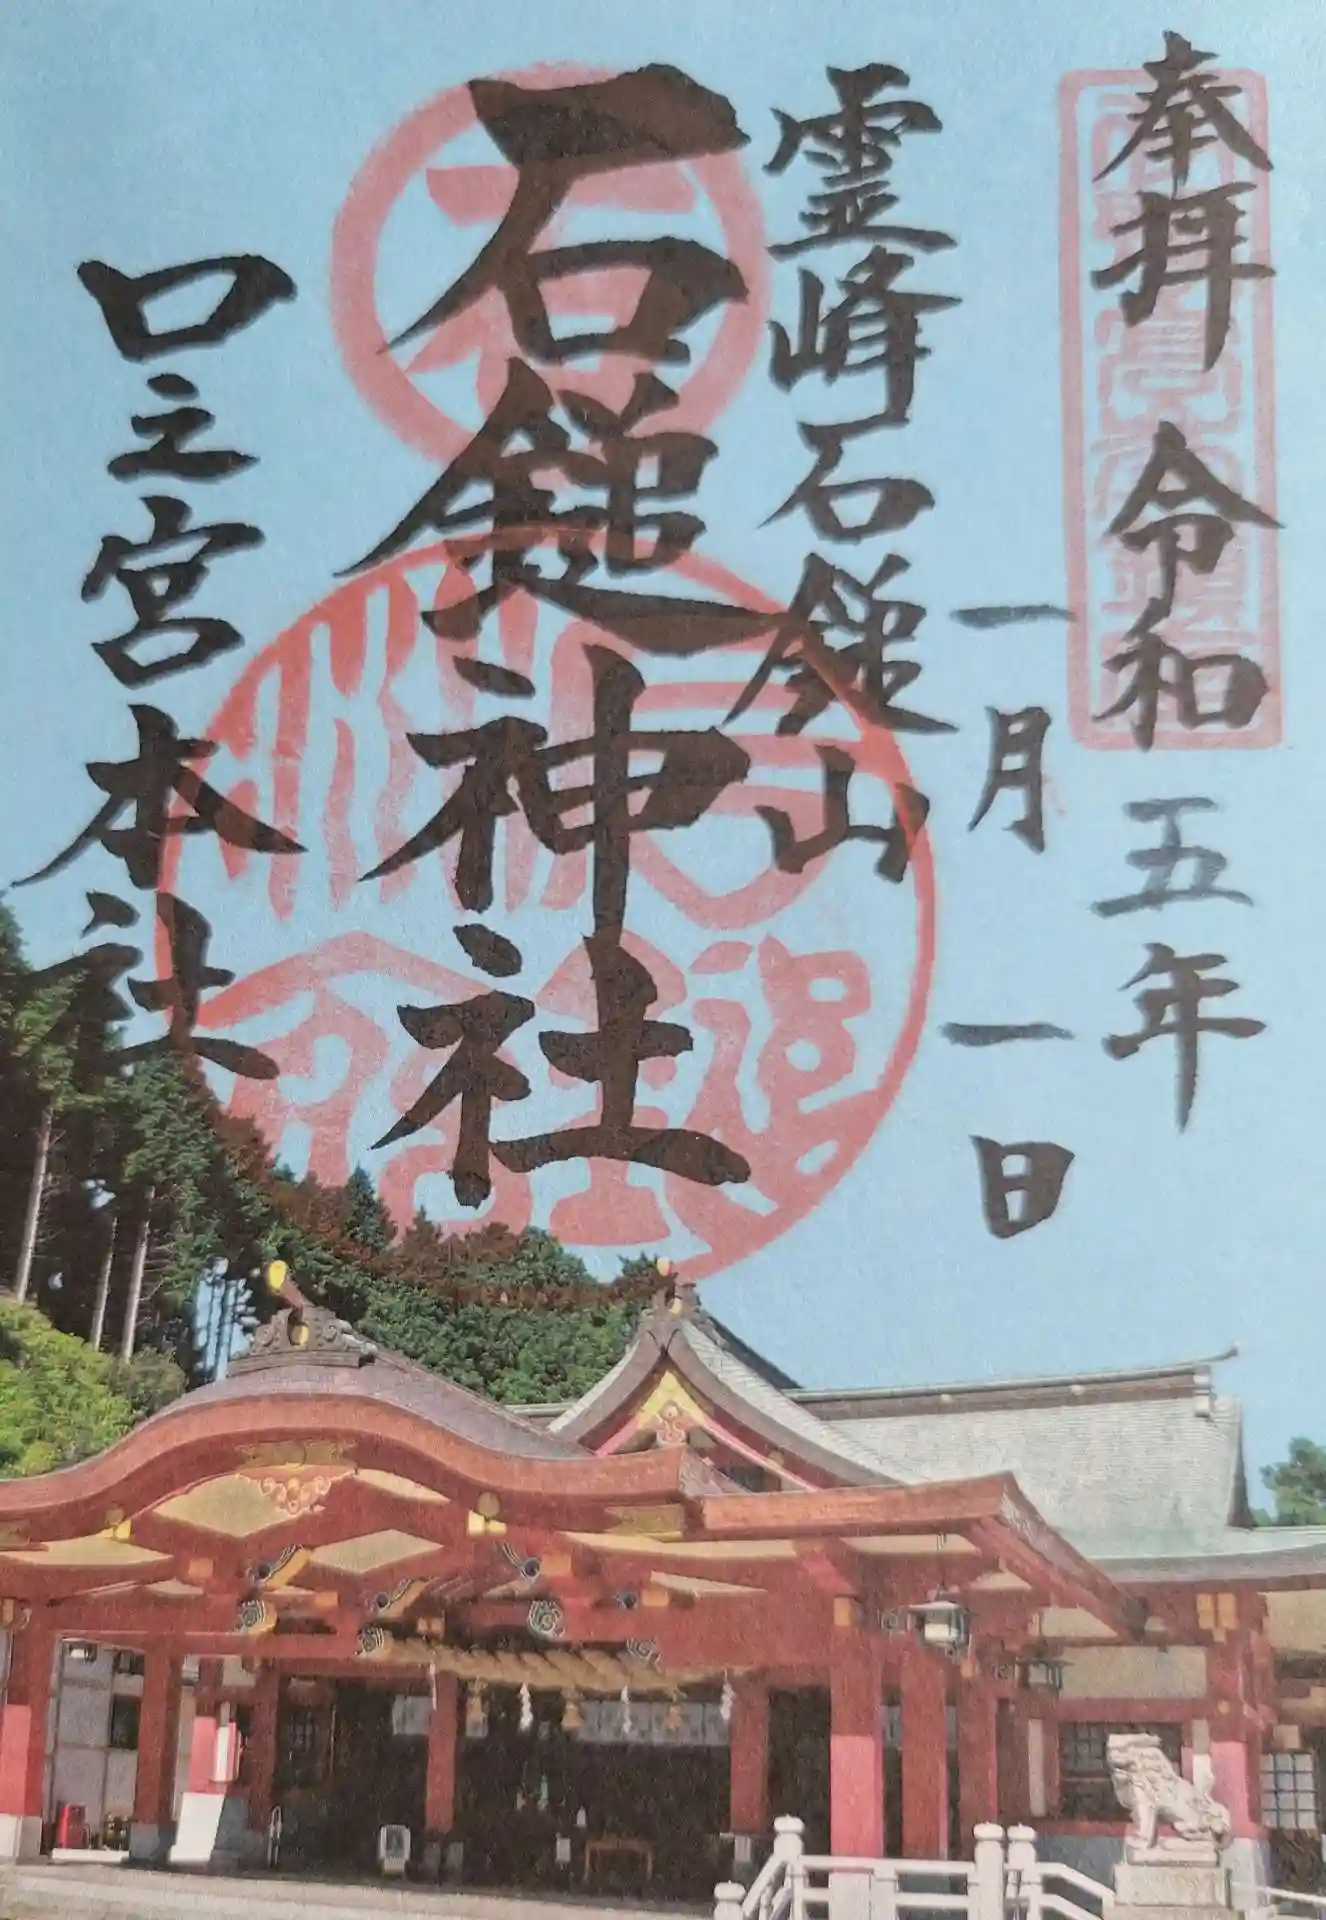 奉拝 令和五年
一月一日
霊峰石鎚山
石鎚神社
口之宮本社